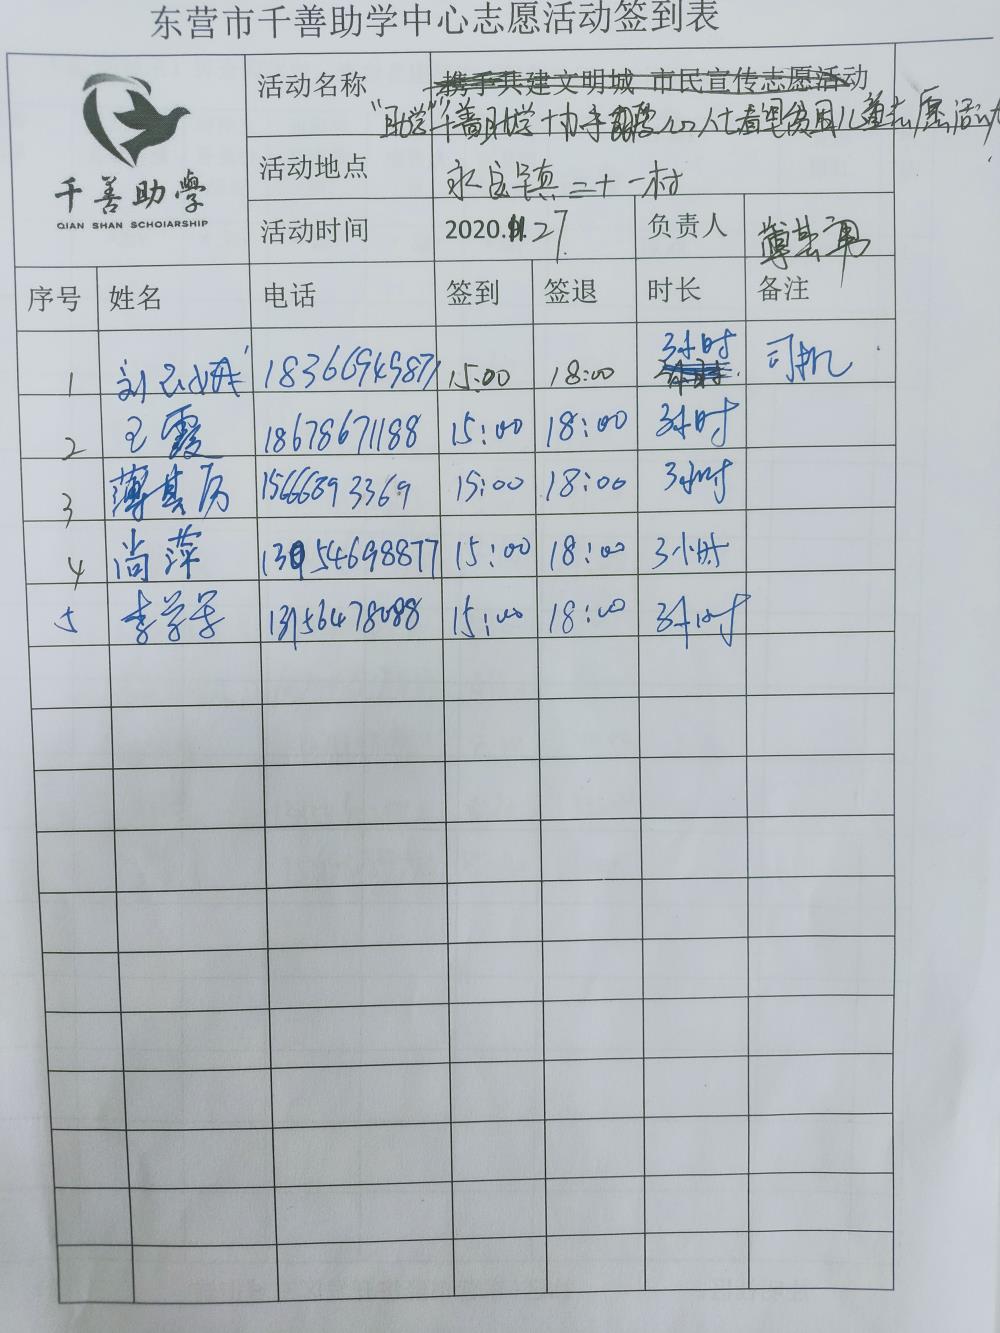 东营市千善助学中心志愿活动签到表
千善助學
QIAN SHAN SCHOlARSHIP
活动名称 携手共建文明城 市民宣传志愿活动
"助学"千善助学 协手 爱心人士看望贫困儿童志愿活动
活动地点 永安镇二十一村
活动时间 2020.11.27 负责人 薄其勇
序号 姓名 电话 签到 签退 时长 备注
1 刘 18366949871 15:00 18:00 3小时 司机
2 王霞 18678671188 15:00 18:00 3小时
3 薄其 15666893369 15:00 18:00 3小时
4 尚萍 13054698877 15:00 18:00 3小时
5 李学军 15:00 18:00 3小时